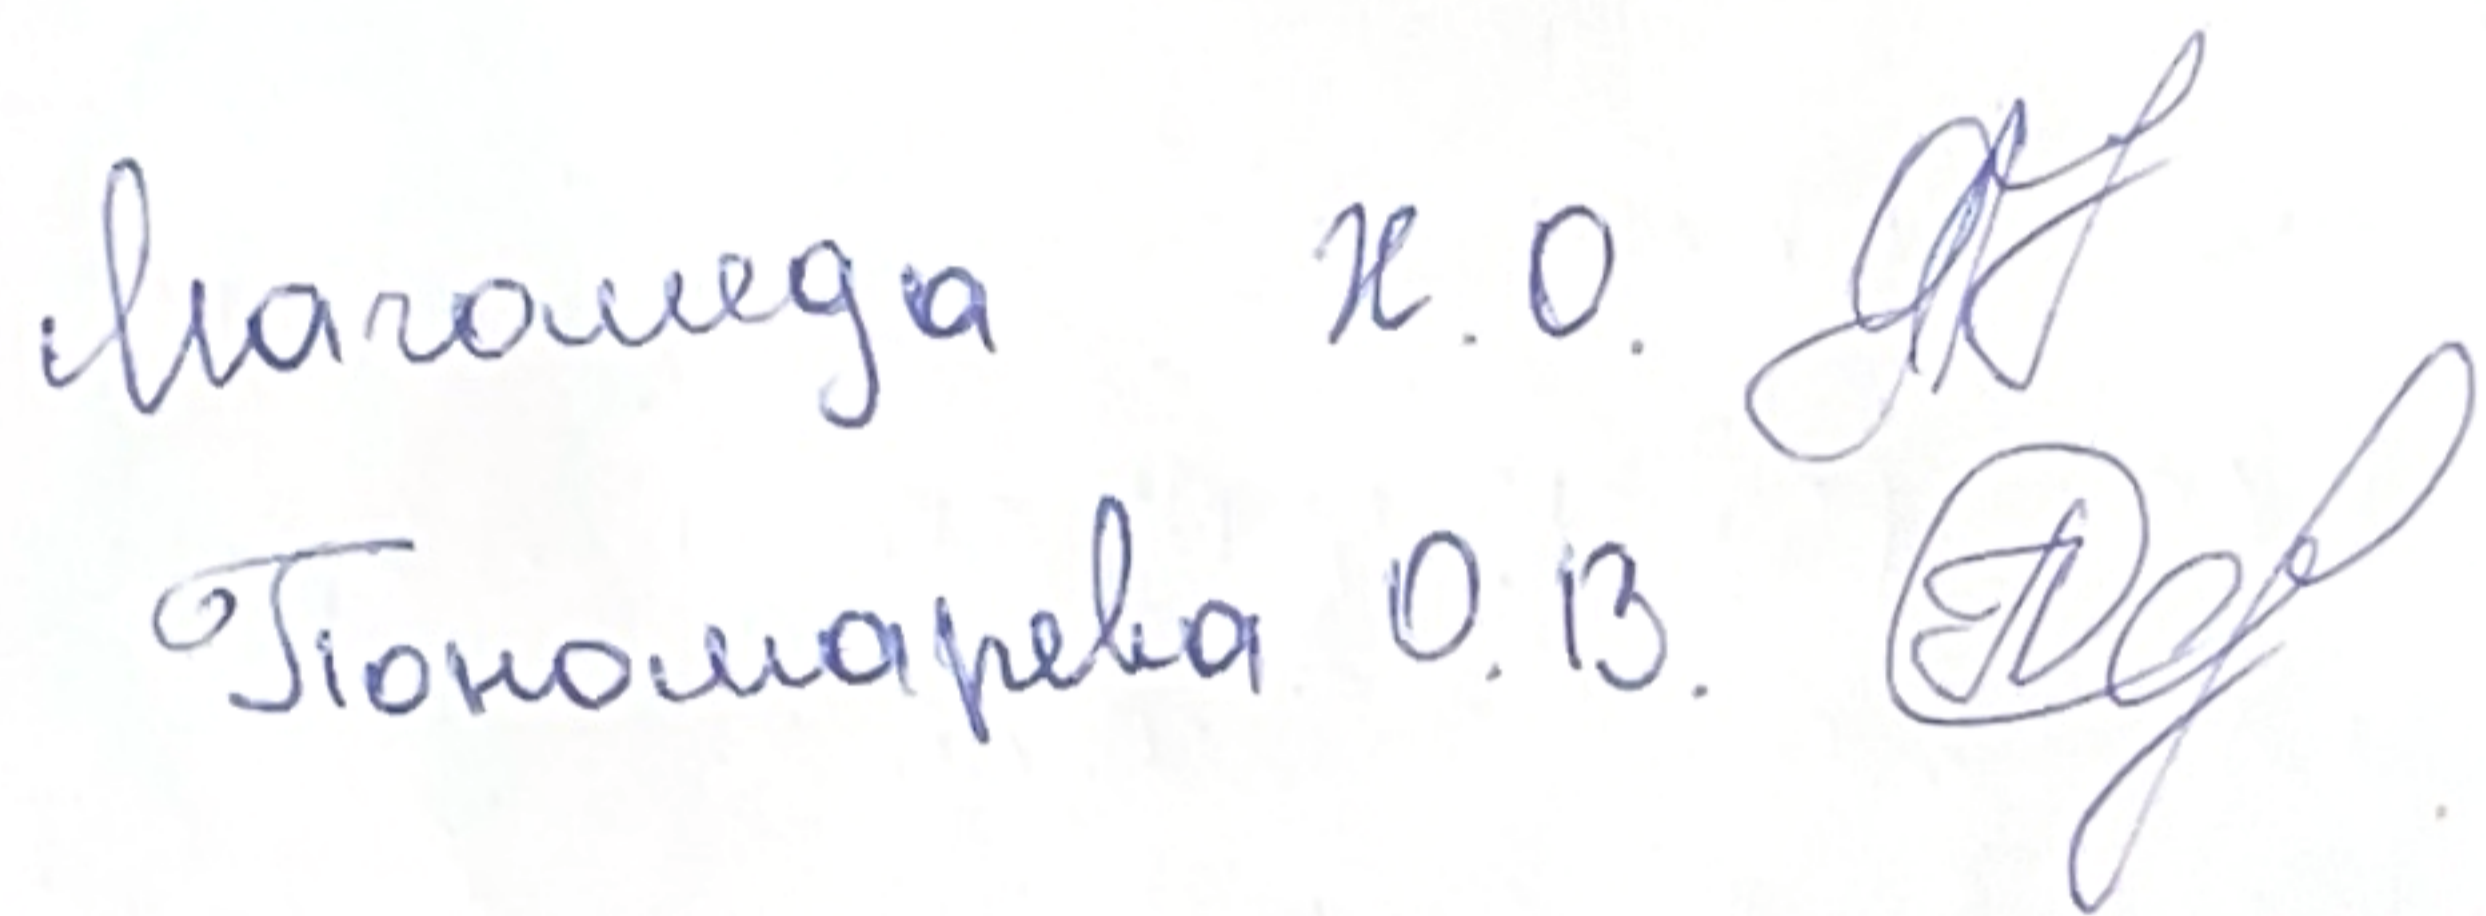 Магомеда Н. О.
Пономарева О. В.